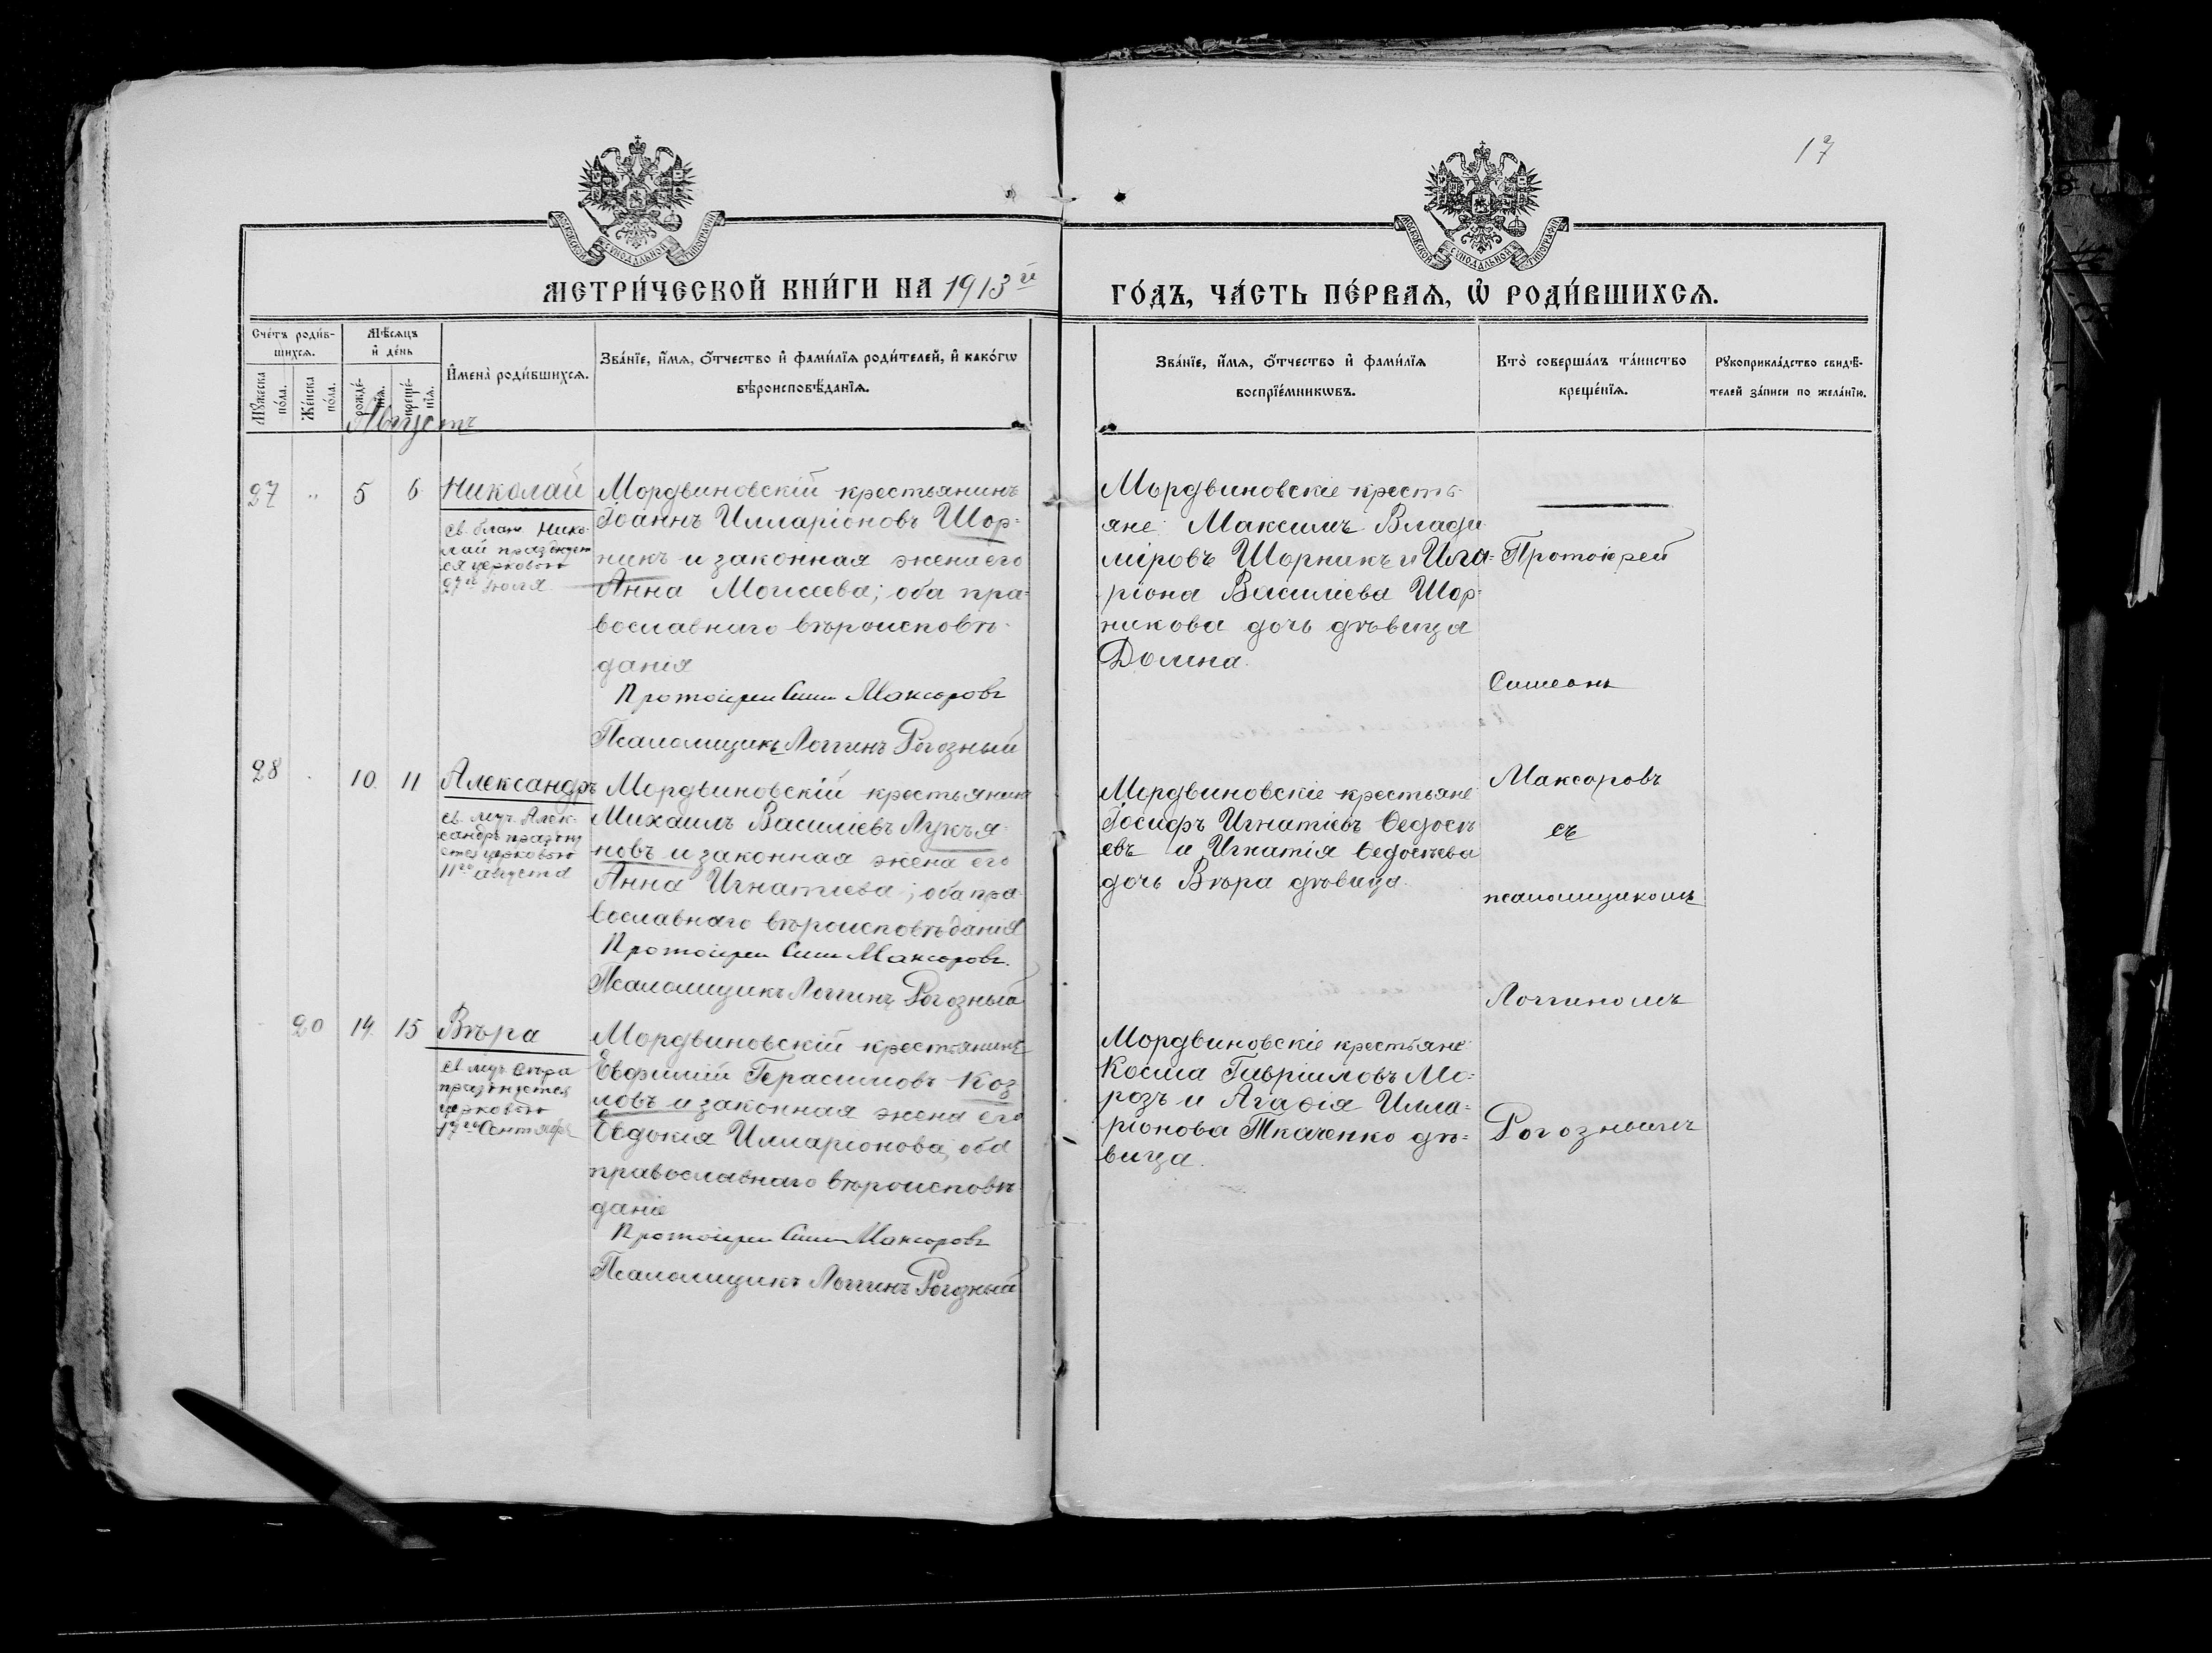 17
МОСКОВСКОЙ СѴНОДАЛЬНОЙ ТИПОГРАФІИ
МОСКОВСКОЙ СѴНОДАЛЬНОЙ ТИПОГРАФІИ
МЕТРИ́ЧЕСКОЙ КНИ́ГИ НА 1913й
ГО́ДЪ, ЧА́СТЬ ПЕ́РВАѦ, Ѡ҆ РОДИ́ВШИХСѦ.
Сче́тъ роди́в-
шихсѧ.
Мꙋ́жеска по́ла.
Же́нска по́ла.
Мѣ́сѧцъ
и҆ де́нь
рожде́-
нїѧ.
креще́-
нїѧ.
И҆мена̀ роди́вшихсѧ.
Зва́нїе, и҆́мѧ, ѻ҆́тчество и҆ фами́лїѧ роди́телей, и҆ како́гѡ
вѣроисповѣ́данїѧ.
Зва́нїе, и҆́мѧ, ѻ҆́тчество и҆ фами́лїѧ
воспрїе́мникѡвъ.
Кто̀ соверша́лъ та́инство
креще́нїѧ.
Рꙋкоприкла́дство свидѣ́-
телей за́писи по жела́нїю.
Августъ
27 " 5 6 Николай
св. блаж. Нико-
лай празднует
ся церковью
27го Іюля
Мордвиновскій крестьянинъ
Іоаннъ Илларіоновъ Шор-
никъ и законная жена его
Анна Моисеева; оба пра-
вославнаго вѣроисповѣ-
данія
Протоіерей Сим Максоровъ
Псаломщикъ Логгинъ Рогозный
Мордвиновскіе кресть-
яне: Максимъ Влади
міровъ Шорникъ и Ила-
ріона Василіева Шор-
никова дочь дѣвица
Домна.
28 10 11 Александръ
св. муч. Алек-
сандръ праздну
ется церковью
11го августа
Мордвиновскій крестьянинъ
Михаилъ Василіевъ Лукья-
новъ и законная жена его
Анна Игнатіева; оба пра-
вославнаго вѣроисповѣданія
Протоіерей Сим Максоровъ.
Псаломщикъ Логгинъ Рогозный
Мордвиновскіе крестьяне
Іосифъ Игнатіевъ Ѳедосѣ
евъ и Игнатія Ѳедосѣева
дочь Вѣра дѣвица.
20 14 15 Вѣра
св. муч. Вѣра
празднуется
церковью
17го Сентября
Мордвиновскій крестьянинъ
Евфимій Герасимовъ Коз
ловъ и законная жена его
Евдокія Илларіонова, оба
православнаго вѣроисповѣ-
даніе
Протоіерей Сим Максоровъ
Псаломщикъ Логгинъ Рогозный
Мордвиновскіе крестьяне
Косма Гавріиловъ Мо-
розъ и Агаѳія Илла-
ріонова Ткаченко дѣ-
вица.
Протоіерей
Симеонъ
Максоровъ
съ
псаломщикомъ
Логгиномъ
Рогознымъ